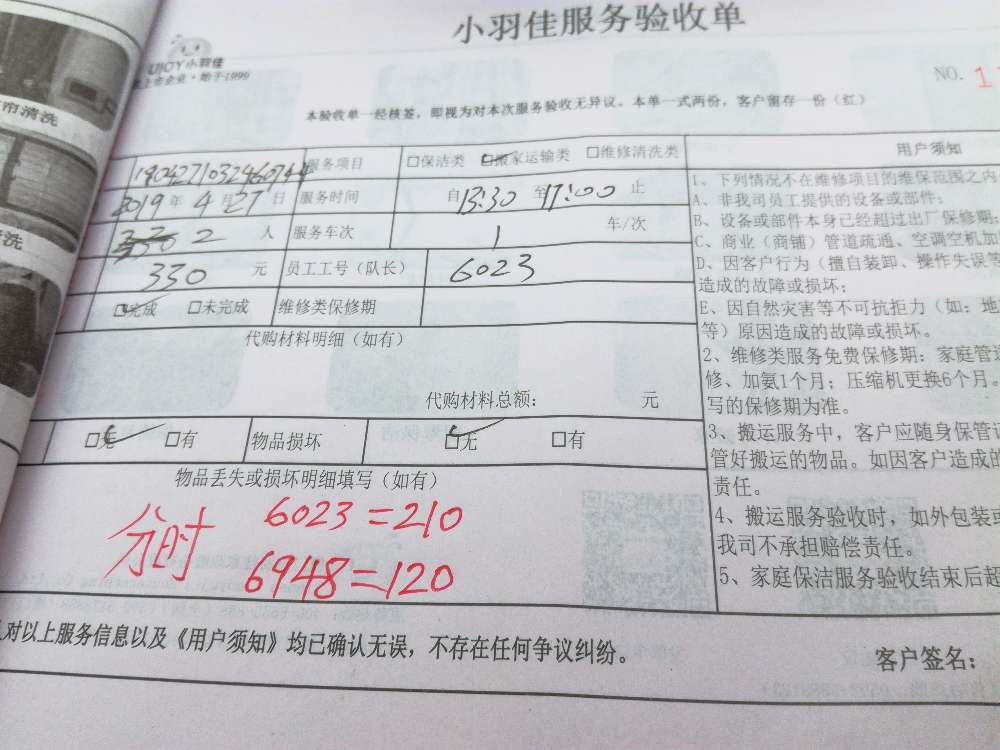 小羽佳服务验收单
UJOY小羽佳
上市企业·始于1999
NO. 1
本验收单一经核签，即视为对本次服务验收无异议。本单一式两份，客户留存一份（红）
帘清洗
清洗
服务项目 □保洁类 □搬家运输类 □维修清洗类
2019年4月27日 服务时间 自13:30至17:00止
2人 服务车次 1 车/次
330元 员工工号（队长） 6023
□完成 □未完成 维修类保修期
代购材料明细（如有）
代购材料总额： 元
□无 □有 物品损坏 □无 □有
物品丢失或损坏明细填写（如有）
分时 6023=210
6948=120
对以上服务信息以及《用户须知》均已确认无误，不存在任何争议纠纷。
客户签名：
用户须知
1、下列情况不在维修项目的维保范围之内
A、非我司员工提供的设备或部件；
B、设备或部件本身已经超过出厂保修期；
C、商业（商铺）管道疏通、空调空机加
D、因客户行为（擅自装卸、操作失误等
造成的故障或损坏；
E、因自然灾害等不可抗拒力（如：地
等）原因造成的故障或损坏。
2、维修类服务免费保修期：家庭管道
修、加氨1个月；压缩机更换6个月。
写的保修期为准。
3、搬运服务中，客户应随身保管
管好搬运的物品。如因客户造成的
责任。
4、搬运服务验收时，如外包装或
我司不承担赔偿责任。
5、家庭保洁服务验收结束后超